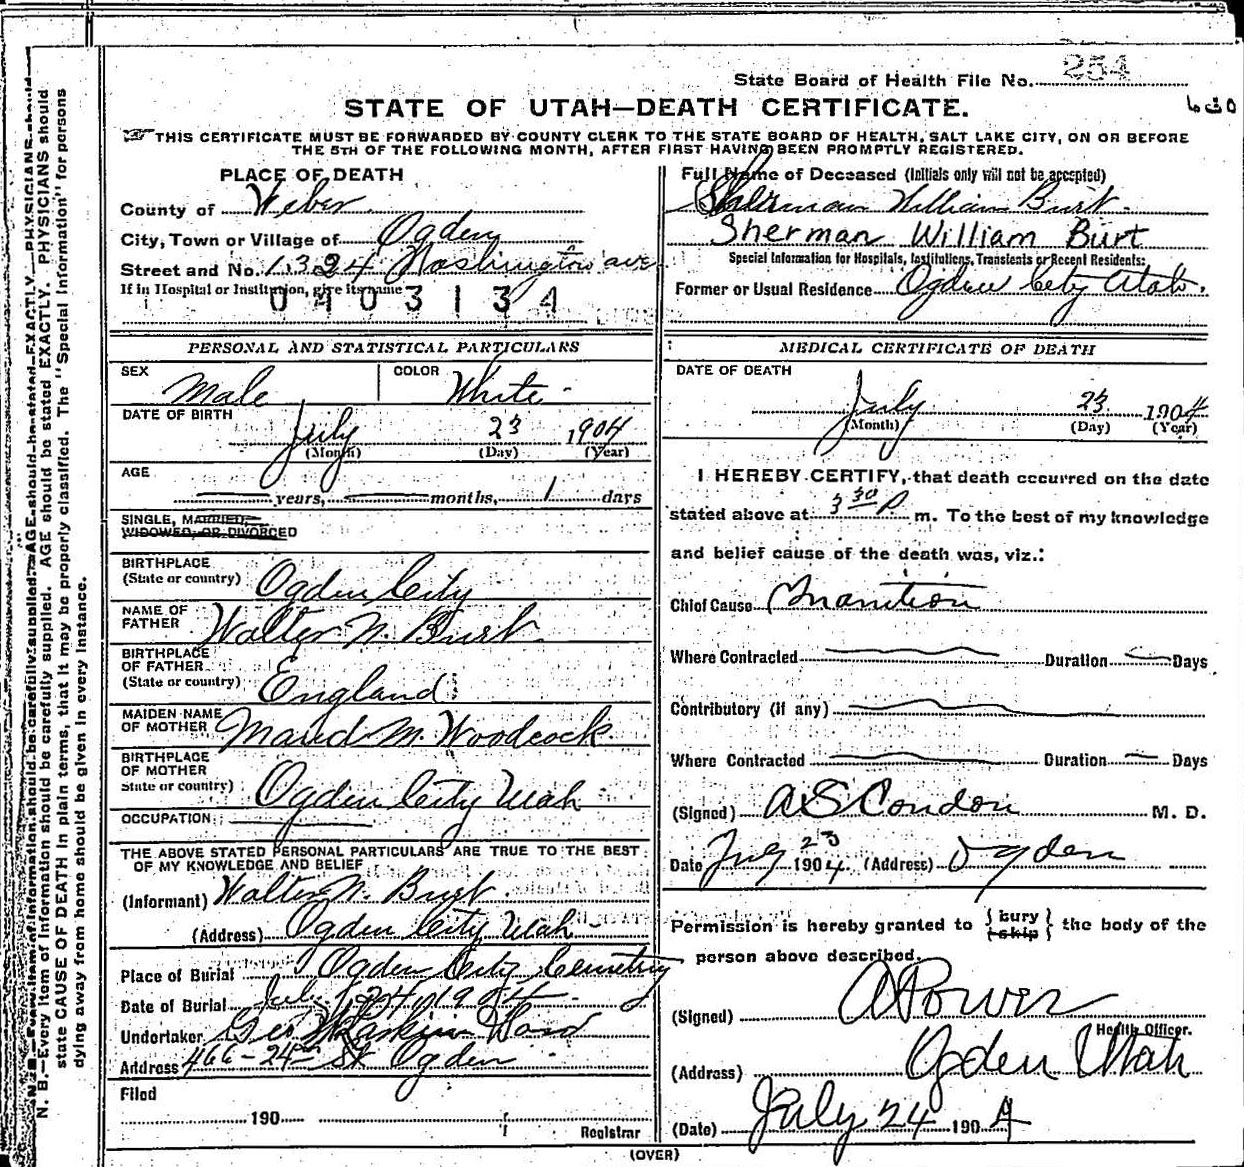 State Board of Health File No. 254
STATE OF UTAH—DEATH CERTIFICATE.
630
THIS CERTIFICATE MUST BE FORWARDED BY COUNTY CLERK TO THE STATE BOARD OF HEALTH, SALT LAKE CITY, ON OR BEFORE
THE 5TH OF THE FOLLOWING MONTH, AFTER FIRST HAVING BEEN PROMPTLY REGISTERED.
N. B.—Every item of information should be carefully supplied. AGE should be stated EXACTLY. PHYSICIANS should
state CAUSE OF DEATH in plain terms, that it may be properly classified. The "Special Information" for persons
dying away from home should be given in every instance.
PLACE OF DEATH
County of Weber
City, Town or Village of Ogden
Street and No. 1324 Washington ave
If in Hospital or Institution, give its name
0403134
PERSONAL AND STATISTICAL PARTICULARS
SEX Male COLOR White
DATE OF BIRTH
July 23 1904
(Month) (Day) (Year)
AGE
years, months, 1 days
SINGLE, MARRIED,
WIDOWED, OR DIVORCED
BIRTHPLACE
(State or country) Ogden City
NAME OF
FATHER Walter N. Burt
BIRTHPLACE
OF FATHER
(State or country) England
MAIDEN NAME
OF MOTHER Maud M. Woodcock
BIRTHPLACE
OF MOTHER
State or country) Ogden City Utah
OCCUPATION
THE ABOVE STATED PERSONAL PARTICULARS ARE TRUE TO THE BEST
OF MY KNOWLEDGE AND BELIEF
(Informant) Walter N. Burt
(Address) Ogden City Utah
Place of Burial Ogden City Cemetry
Date of Burial July 24 1904
Undertaker Geo W Larkin
Address 466-24th St Ogden
Filed
190
Registrar
Full Name of Deceased (Initials only will not be accepted)
Sherman William Burt
Sherman William Burt
Special Information for Hospitals, Institutions, Transients or Recent Residents:
Former or Usual Residence Ogden City Utah.
MEDICAL CERTIFICATE OF DEATH
DATE OF DEATH
July 23 1904
(Month) (Day) (Year)
I HEREBY CERTIFY, that death occurred on the date
stated above at 3 30 P m. To the best of my knowledge
and belief cause of the death was, viz.:
Chief Cause Inanition
Where Contracted Duration Days
Contributory (if any)
Where Contracted Duration Days
(Signed) A S Condon M. D.
Date July 23 1904. (Address) Ogden
Permission is hereby granted to { bury ship } the body of the
person above described.
(Signed) A Power
Health Officer.
(Address) Ogden Utah
(Date) July 24 1904
(OVER)